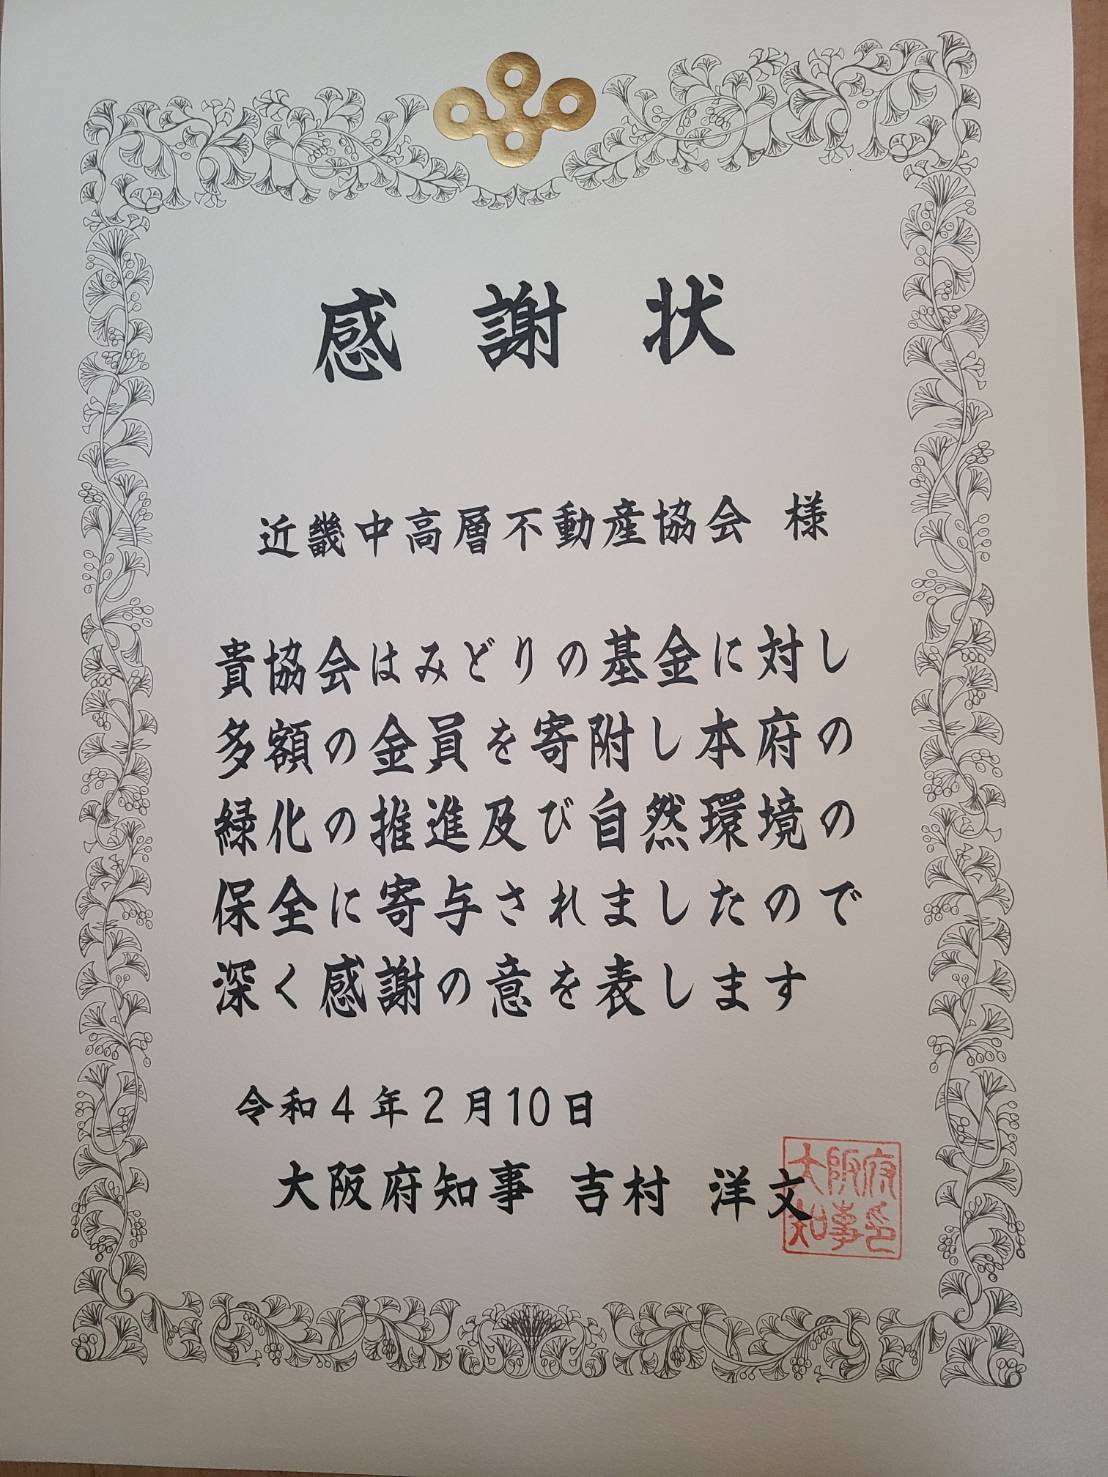 感謝状
近畿中高層不動産協会 様
貴協会はみどりの基金に対し
多額の金員を寄附し本府の
緑化の推進及び自然環境の
保全に寄与されましたので
深く感謝の意を表します
令和4年2月10日
大阪府知事 吉村 洋文
大阪府
知事印